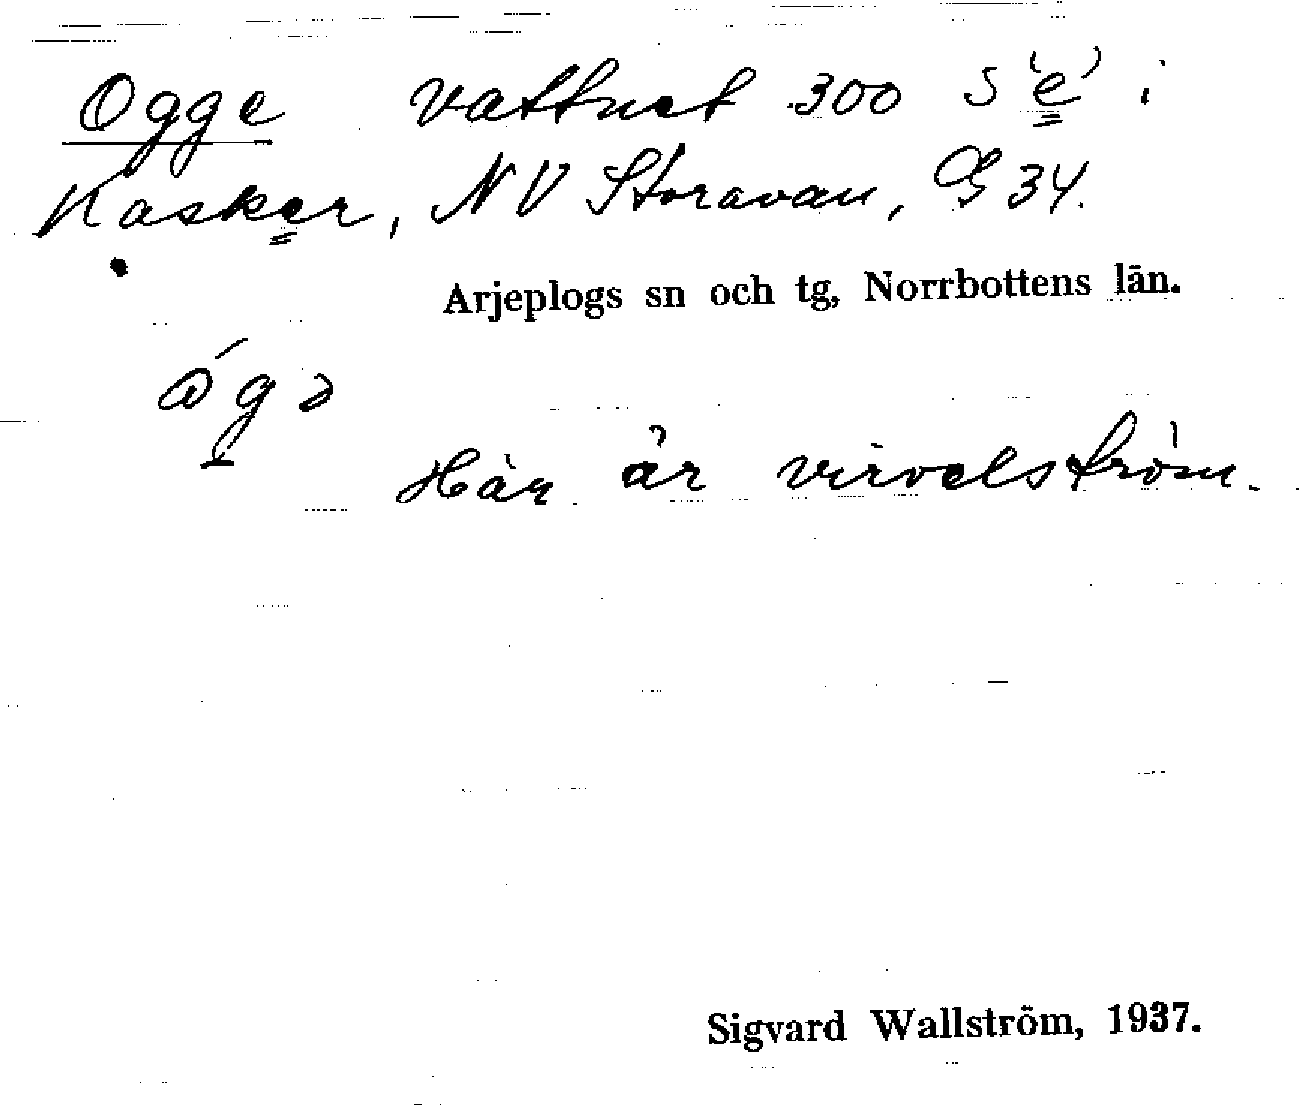 Ogge vattnet 300 S 'e' i
Kasker, NV Storavan, G 34.
Arjeplogs sn och tg, Norrbottens län.
ógə
Här är virvelström.
Sigvard Wallström, 1937.